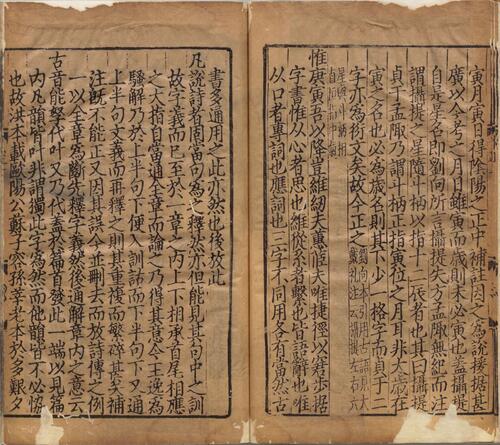 寅月寅日得隂陽之正中補註因之為說援據甚
廣以今考之月日雖寅而歲則未必寅也蓋攝提
自是星名即劉向所言攝提失方孟陬無紀而注
謂攝提之星隨斗柄以指十二辰者也其曰攝提
貞于孟陬乃謂斗柄正指寅位之月耳非太歲在
寅之名也必為歲名則其下少一格字而貞于二
字亦為衍文矣故今正之劉向本引用古語見大戴禮注云攝提左右六
星與斗柄相直恒指中氣
惟庚寅吾以降豈維紉夫蕙茝夫唯捷徑以窘步據
字書惟从心者思也維从糸者繫也皆語辭也唯
从口者專詞也應詞也三字不同用各有當然古
書多通用之此亦然也後放此
凡說詩者固當句為之釋然亦但能見其句中之訓
故字義而已至於一章之內上下相承首尾相應
之大指自當通全章而論之乃得其意今王逸為
騷解乃於上半句下便入訓詁而下半句下又通
上半句文義而再釋之則其重複而繁碎甚矣補
注既不能正又因其誤今並刪去而放詩傳之例
一以全章為斷先釋字義然後通解章內之意云
古音能孥代叶又乃代蓋於篇首發此一端以見篇
內凡韻皆叶非謂獨此字為然而他韻皆不必協
也故洪本載歐陽公蘇子容孫莘老本於多艱夕